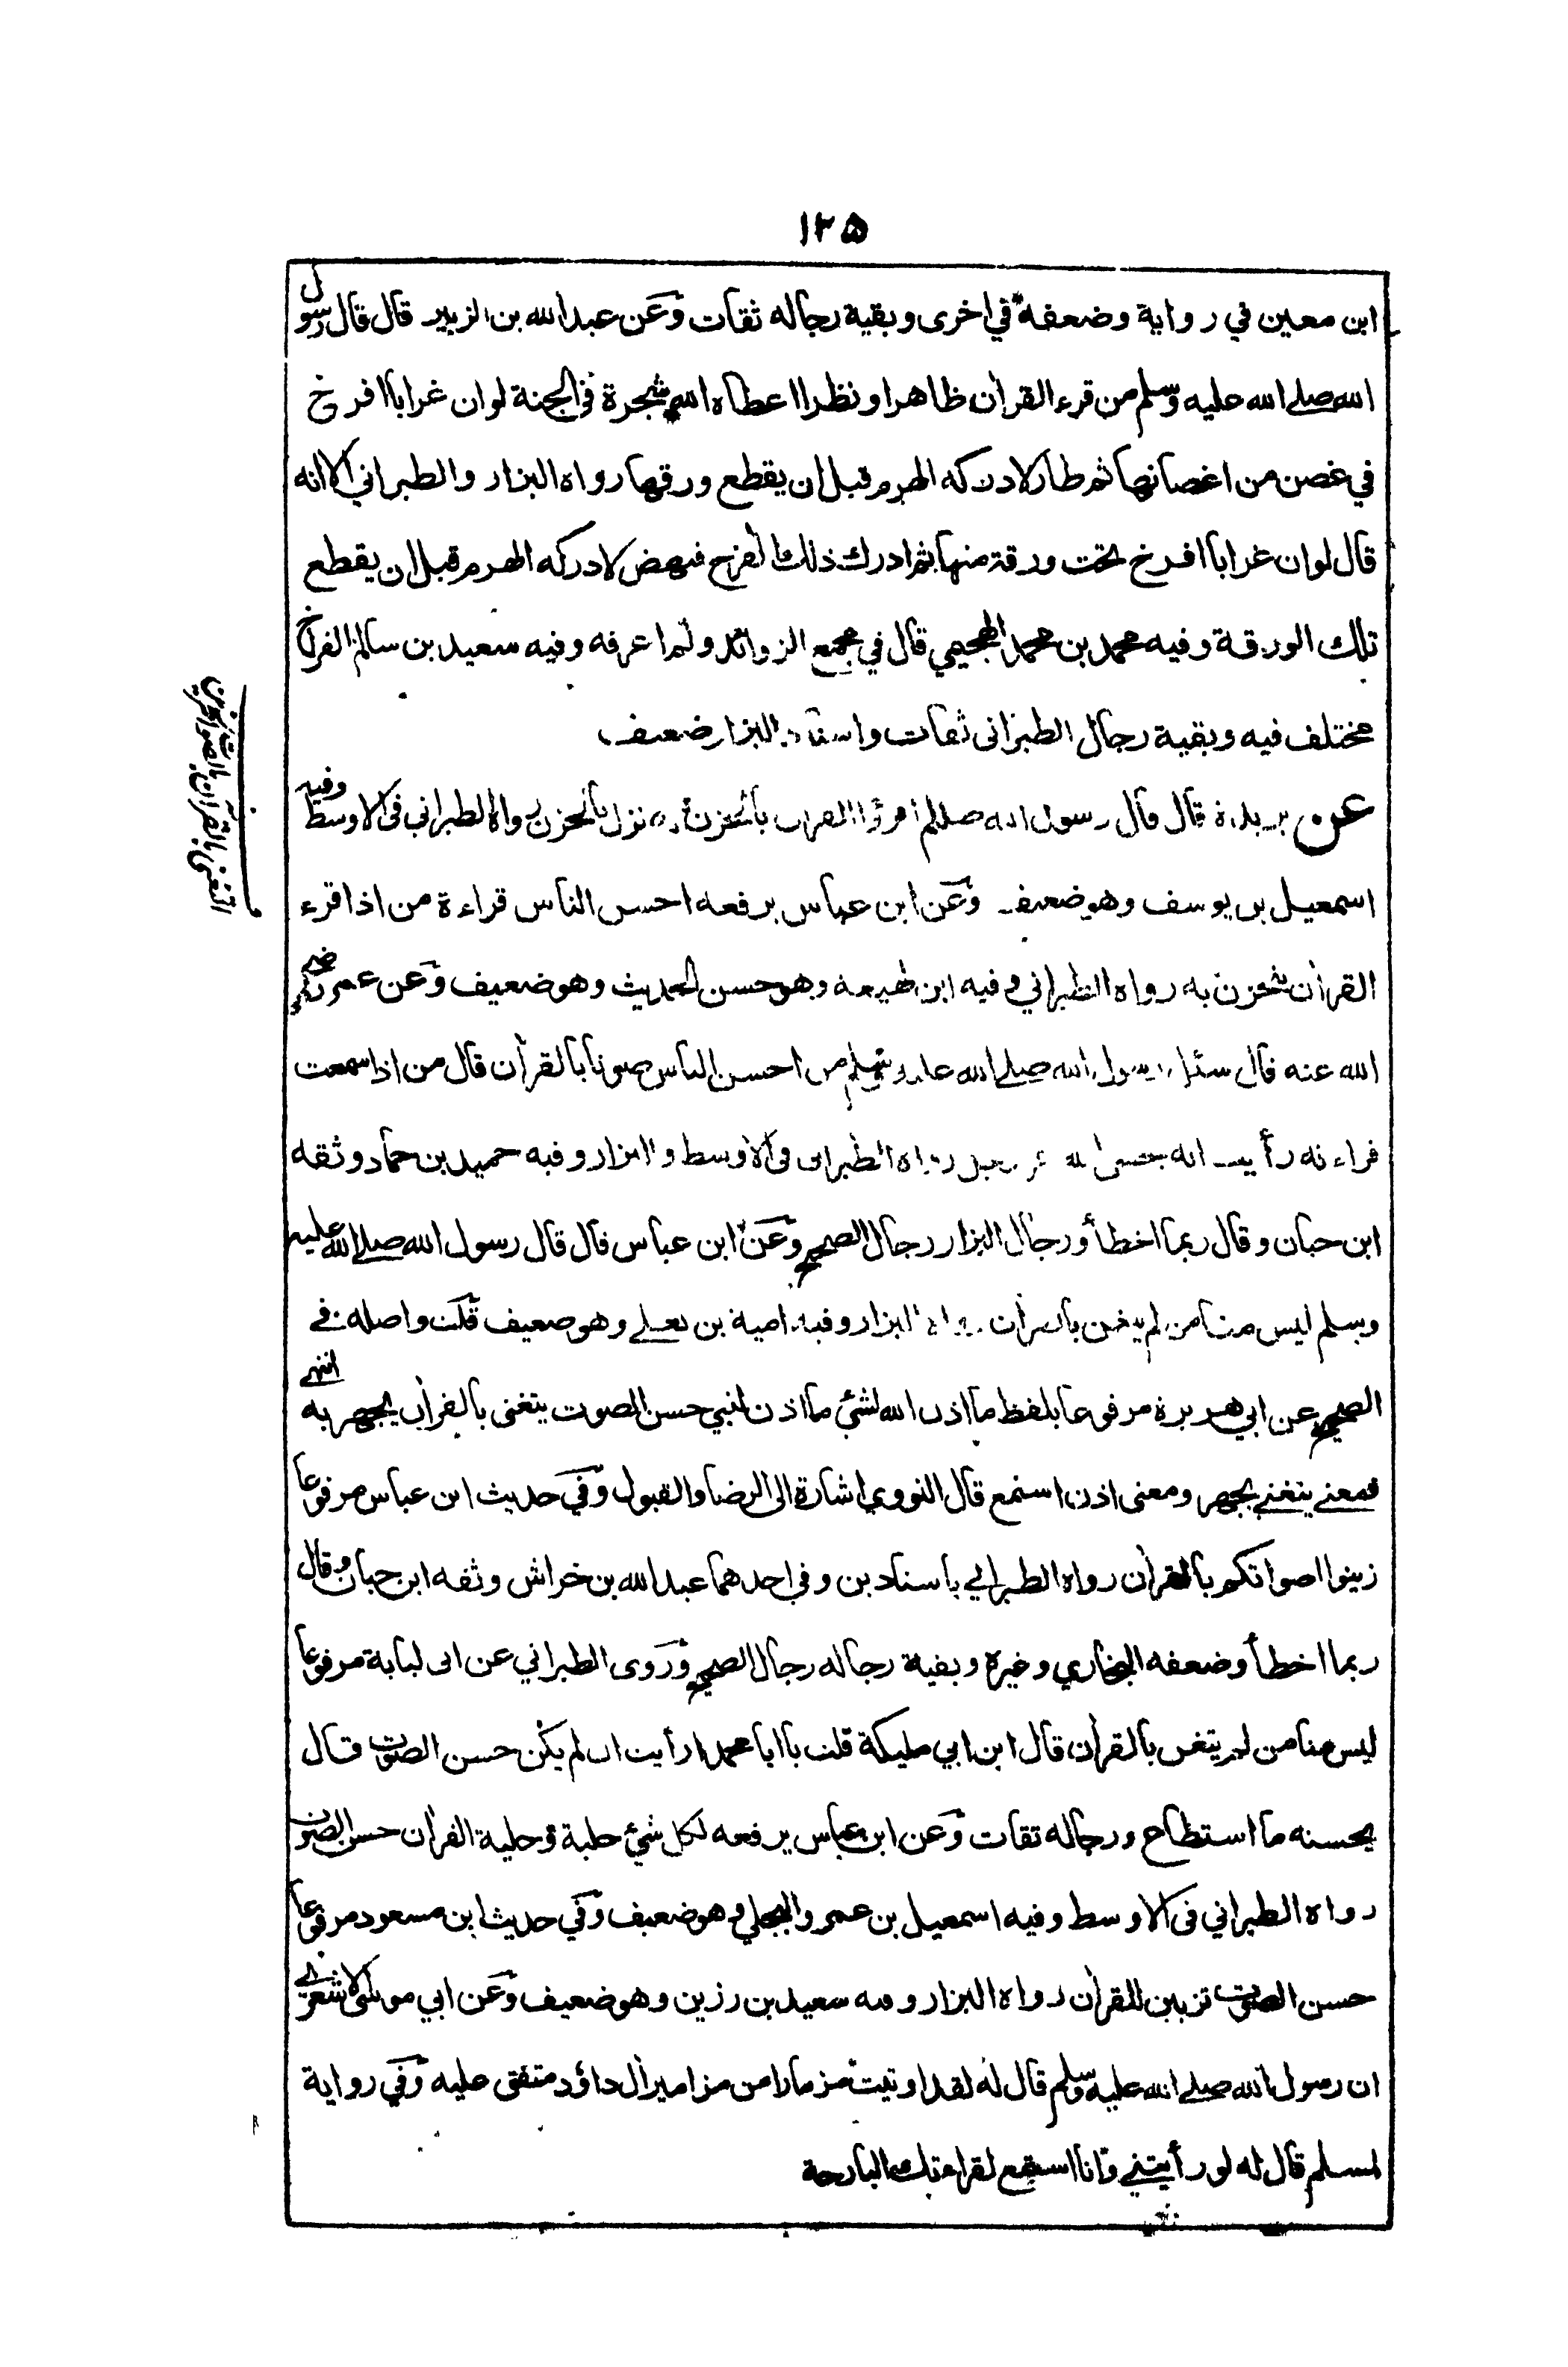 ١٢٥
ابن معين في رواية وضعفه في اخرى وبقية رجاله ثقات وعن عبد الله بن الزبير قال قال رسول
الله صلى الله عليه وسلم من قرء القرأن ظاهرا ونظرا اعطاه الله شجرة في الجنة لوان غرابا افرخ
في غصن من اغصانها ثم طار لادركه الهرم قبل ان يقطع ورقها رواه البزار والطبراني الا انه
قال لوان غرابا افرخ تحت ورقة منها ثم ادرك ذلك الفرخ فنهض لادركه الهرم قبل ان يقطع
تلك الورقة وفيه محمد بن محمد الهجيمي قال في مجمع الزوائد ولم اعرفه وفيه سعيد بن سالم القداح
مختلف فيه وبقية رجال الطبراني ثقات واسناد البزار ضعيف
عن بريدة قال قال رسول الله صللم اقرؤا القران بالحزن نزل بالحزن رواه الطبراني في الاوسط وفيه
اسمعيل بن يوسف وهو ضعيف وعن ابن عباس يرفعه احسن الناس قراءة من اذا قرء
القرأن يتحزن به رواه الطبراني وفيه ابن لهيعة وهو حسن الحديث وهو ضعيف وعن عمر رضي
الله عنه قال سئل رسول الله صلى الله عليه وسلم من احسن الناس صوتا بالقرأن قال من اذا سمعت
قراءته رأيت انه يخشى الله عز وجل رواه الطبراني في الاوسط والبزار وفيه حميد بن حماد وثقه
ابن حبان وقال ربما اخطأ ورجال البزار رجال الصحيح وعن ابن عباس قال قال رسول الله صلى الله عليه
وسلم ليس منا من لم يتغن بالقرأن رواه البزار وفيه امية بن يعلى وهو ضعيف قلت واصله في
الصحيح عن ابي هريرة مرفوعا بلفظ ما اذن الله لشئ ما اذن لنبي حسن الصوت يتغنى بالقرأن يجهر به انتهى
فمعنى يتغنى يجهر ومعنى اذن استمع قال النووي اشارة الى الرضا والقبول وفي حديث ابن عباس مرفوعا
زينوا اصواتكم بالقرأن رواه الطبراني باسنادين وفي احدهما عبد الله بن خراش وثقه ابن حبان وقال
ربما اخطأ وضعفه البخاري وغيره وبقية رجاله رجال الصحيح وروى الطبراني عن ابى لبابة مرفوعا
ليس منا من لم يتغن بالقرأن قال ابن ابي مليكة قلت يا ابا محمد ارأيت ان لم يكن حسن الصوت قال
يحسنه ما استطاع ورجاله ثقات وعن ابن عباس يرفعه لكل شئ حلية وحلية القرأن حسن الصوت
رواه الطبراني في الاوسط وفيه اسمعيل بن عمرو البجلي وهو ضعيف وفي حديث ابن مسعود مرفوعا
حسن الصوت تزيين للقرأن رواه البزار وفيه سعيد بن رزين وهو ضعيف وعن ابي موسى الاشعري
ان رسول الله صلى الله عليه وسلم قال له لقد اوتيت مزمارا من مزامير أل داؤد متفق عليه وفي رواية
لمسلم قال له لو رأيتني وانا استمع لقراءتك البارحة